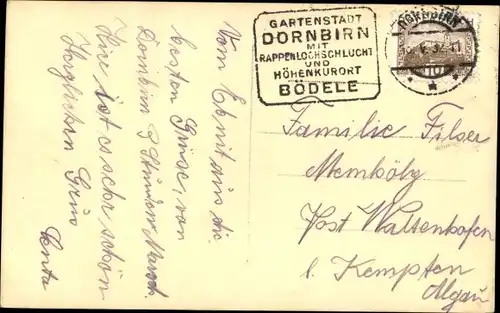 Von Ebnit aus die
besten Grüsse, von
Dornbirn 3 Stunden Marsch.
Hier ist es sehr schön
Herzlichen Gruss
Senta
GARTENSTADT
DORNBIRN
MIT
RAPPENLOCHSCHLUCHT
UND
HÖHENKURORT
BÖDELE
DORNBIRN
10
Familie Filser
Memhölz
Post Waltenhofen
b. Kempten
Algäu